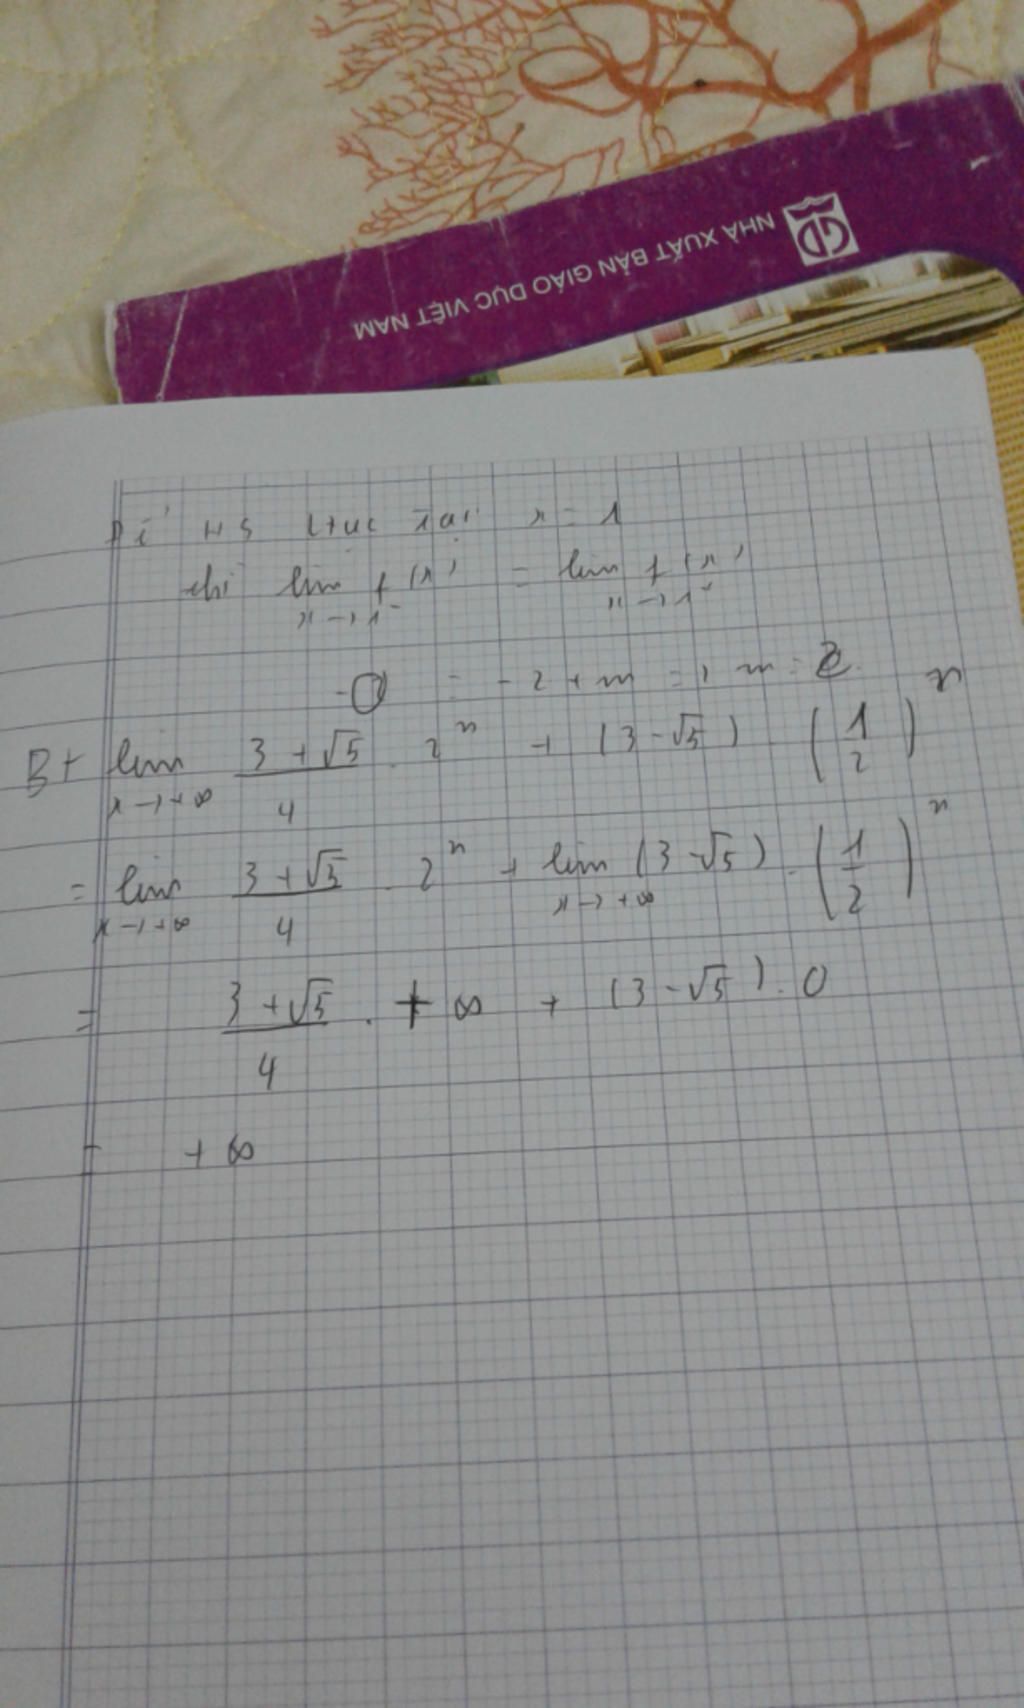 NHÀ XUẤT BẢN GIÁO DỤC VIỆT NAM
GD
HS ltục tại x = 1
thì lim f(x) = lim f(x)
x → 1⁻ x → 1⁺
0 = -2 + m => m = 2
B+ lim 3 + √5 / 4 . 2ⁿ + (3 - √5) . (1/2)ⁿ
x → +∞
= lim 3 + √5 / 4 . 2ⁿ + lim (3 - √5) . (1/2)ⁿ
x → +∞ x → +∞
= 3 + √5 / 4 . +∞ + (3 - √5) . 0
= +∞